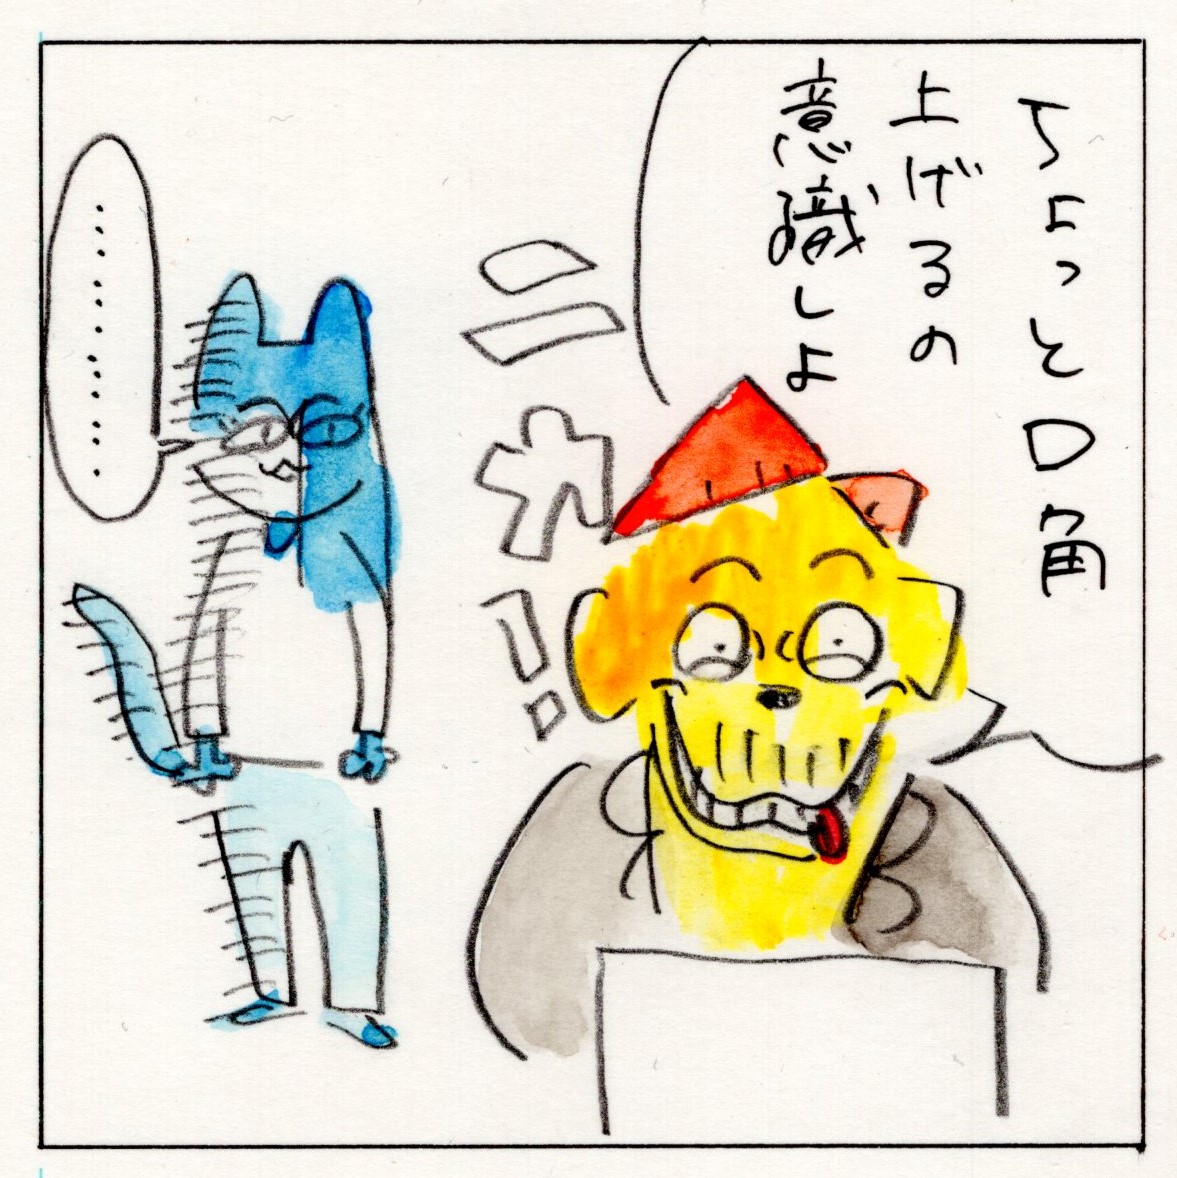 ちょっと口角
上げるの
意識しよ
ニカッ!
………………